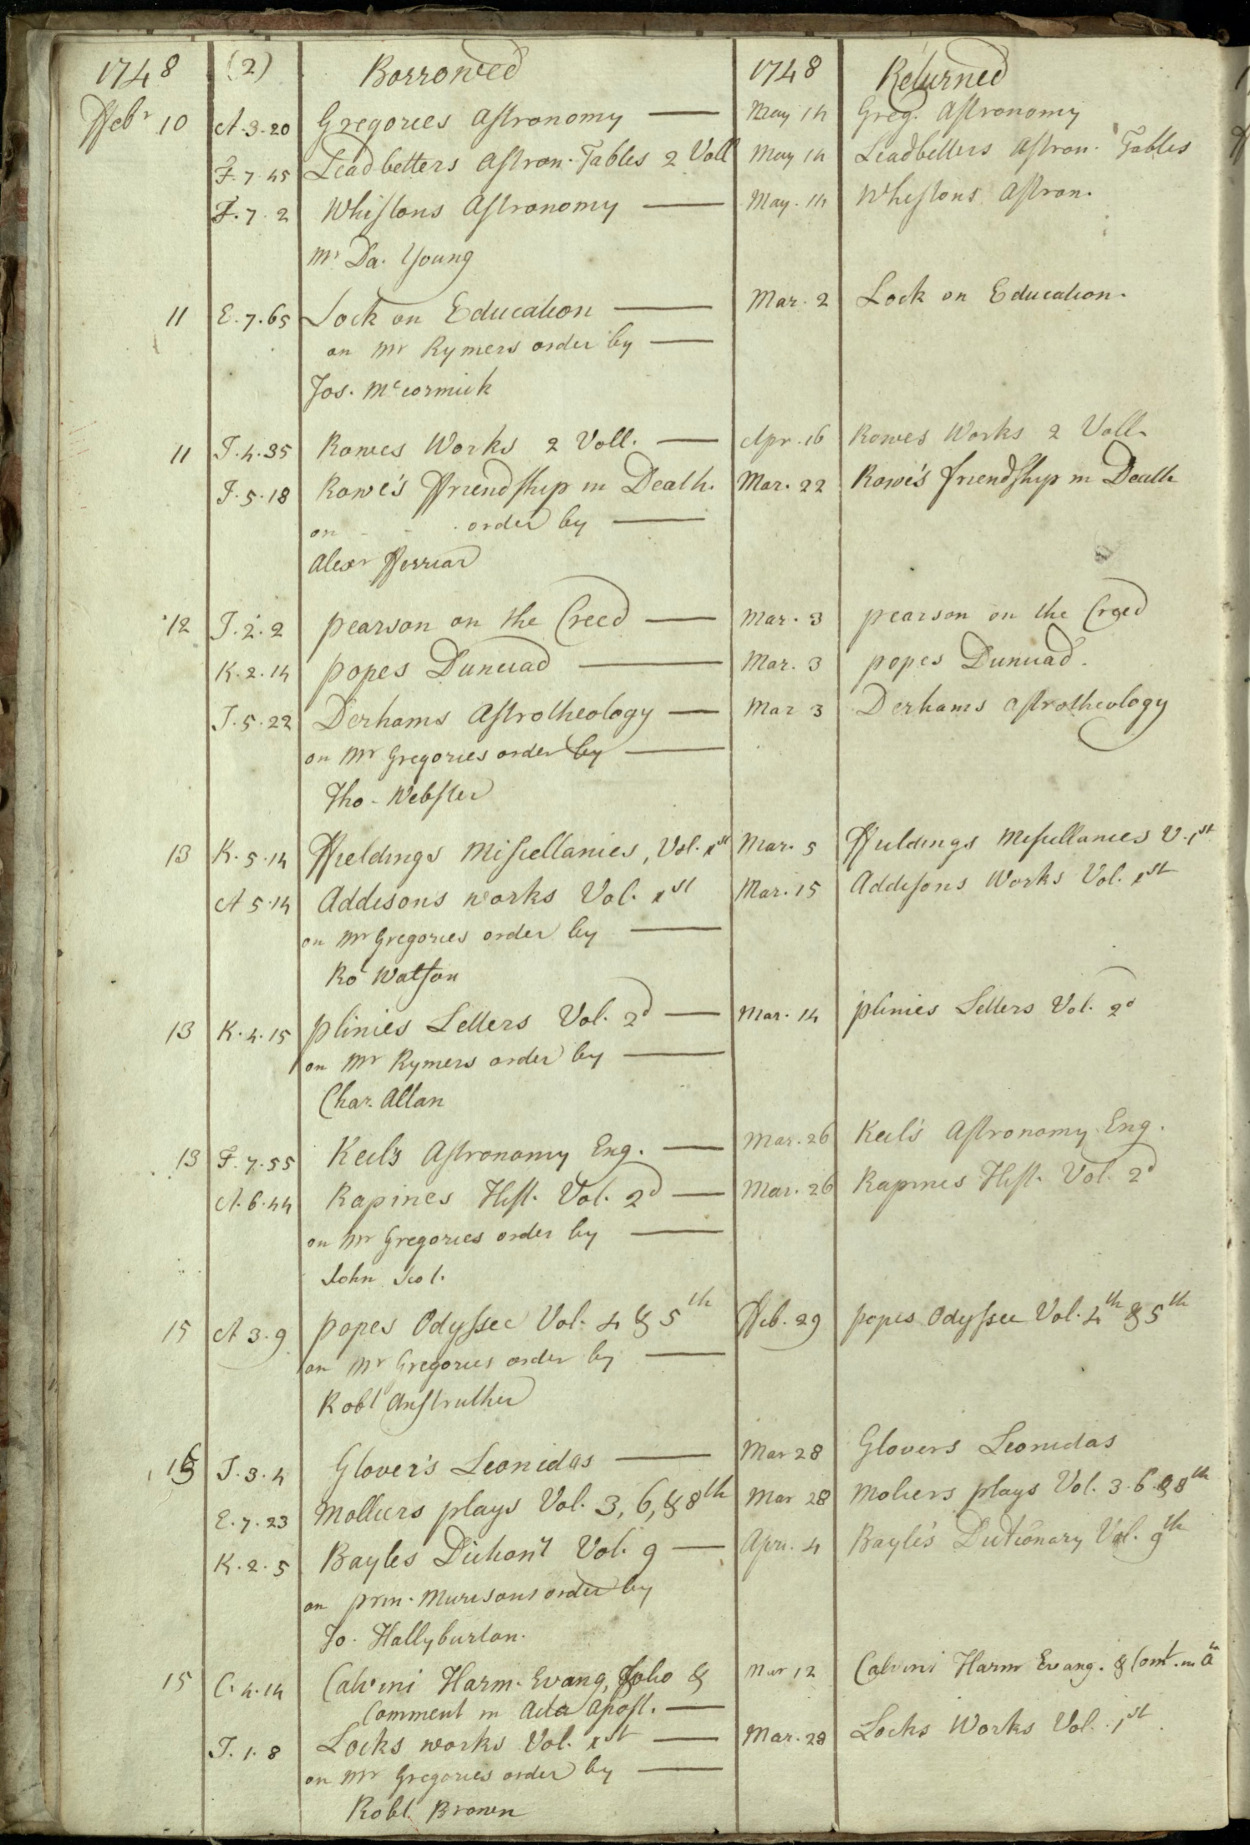 1748 (2) Borrowed 1748 Returned
Ffebr 10 A.3.20 Gregories Astronomy — May 14 Greg. Astronomy
F.7.45 Leadbetters Astron. Tables 2 Voll May 14 Leadbetters Astron. Tables
F.7.2 Whistons Astronomy — May. 14 Whistons Astron.
Mr Da. Young
11 E.7.65 Lock on Education — Mar. 2 Lock on Education.
on Mr Rymers order by —
Jos. McCormick
11 J.4.35 Rowes Works 2 Voll. — Apr. 16 Rowes Works 2 Voll.
J.5.18 Rowe's Ffriendship in Death. Mar. 22 Rowe's friendship in Death
on - - order by —
Alexr Fferriar
12 J.2.2 pearson on the Creed — Mar. 3 pearson on the Creed
K.2.14 popes Dunciad — Mar. 3 popes Dunciad.
J.5.22 Derhams Astrotheology — Mar 3 Derhams Astrotheology
on Mr Gregories order by —
Tho. Webster
13 K.5.14 Ffieldings Miscellanies, Vol. 1st Mar. 5 Ffieldings Miscellanies V. 1st
A 5.14 Addisons works Vol. 1st Mar. 15 Addisons Works Vol. 1st
on Mr Gregories order by —
Ro Watson
13 K.4.15 plinies Letters Vol. 2d — Mar. 14 plinies Letters Vol. 2d
on Mr Rymers order by —
Char. Allan
13 F.7.55 Keil's Astronomy Eng. — Mar. 26 Keil's Astronomy Eng.
A.6.44 Rapines Hist. Vol. 2d — Mar. 26 Rapines Hist. Vol. 2d
on Mr Gregories order by —
John Scot.
15 A 3.9 popes Odyssee Vol. 4 & 5th Ffeb. 29 popes Odyssee Vol. 4th & 5th
on Mr Gregories order by —
Robt Anstruther
J.3.4 Glover's Leonidas — Mar 28 Glovers Leonidas
E.7.23 Moliers plays Vol. 3, 6, & 8th Mar 28 Moliers plays Vol. 3. 6. & 8th
K.2.5 Bayles Diction'y Vol. 9 — Apr. 4 Bayle's Dictionary Vol. 9th
on prin. Murisons order by
Jo. Hallyburton.
15 C.4.14 Calvini Harm. Evang, folio & Mar 12 Calvini Harm Evang. & Comt. in A
Comment in Acta Apost. —
J.1.8 Locks works Vol. 1st — Mar. 28 Locks Works Vol. 1st.
on Mr Gregories order by —
Robt. Brown